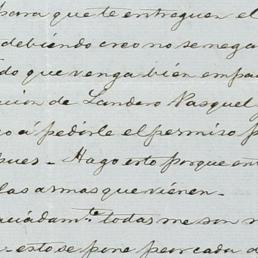 para que te entreguen el
debiendo creo no se nega
do que venga bien empa
cion de Landero Pasquel
o á pedirle el permiso p
pues - Hago esto porque en
las armas que vienen -
ciadam.te todas me son n
- esto se pone peor cada d